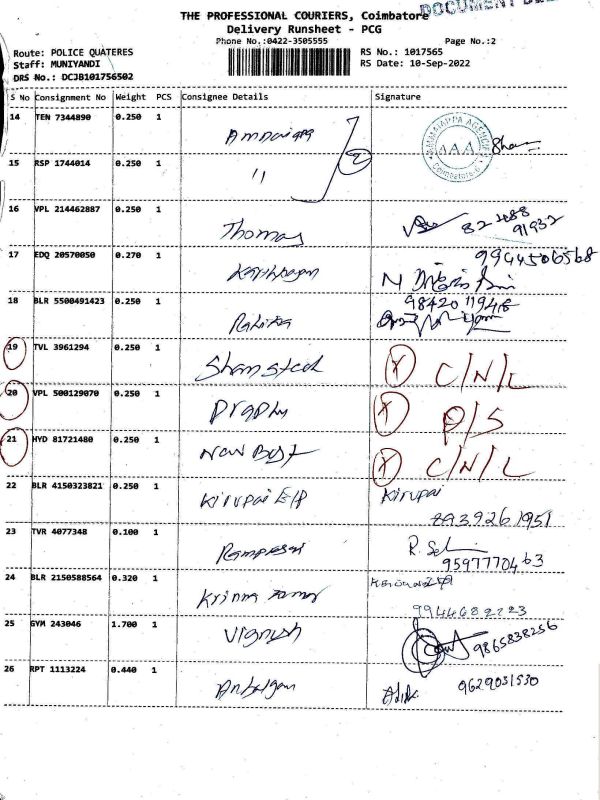 THE PROFESSIONAL COURIERS, Coimbatore
Delivery Runsheet - PCG
Phone No.:0422-3505555 Page No.:2
Route: POLICE QUATERES RS No.: 1017565
Staff: MUNIYANDI RS Date: 10-Sep-2022
DRS No.: DCJB101756502
S No Consignment No Weight PCS Consignee Details Signature
14 TEN 7344890 0.250 1
15 RSP 1744014 0.250 1 "
16 VPL 214462887 0.250 1 Thomas
17 EDQ 20570050 0.270 1 9944506568
18 BLR 5500491423 0.250 1
19 TVL 3961294 0.250 1 Sham steel X C/N/L
20 VPL 500129070 0.250 1 Praphu X P/S
21 HYD 81721480 0.250 1 New Best X C/N/L
22 BLR 4150323821 0.250 1 Kirupai Kirupai
8939261951
23 TVR 4077348 0.100 1 R. Sel
9597770463
24 BLR 2150588564 0.320 1
25 GYM 243046 1.700 1 Vignesh 9865838256
26 RPT 1113224 0.440 1 9629031530